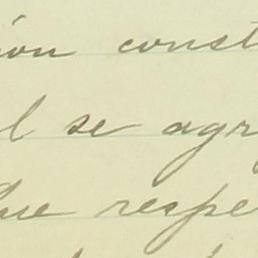 ión const
l se agr
que respe